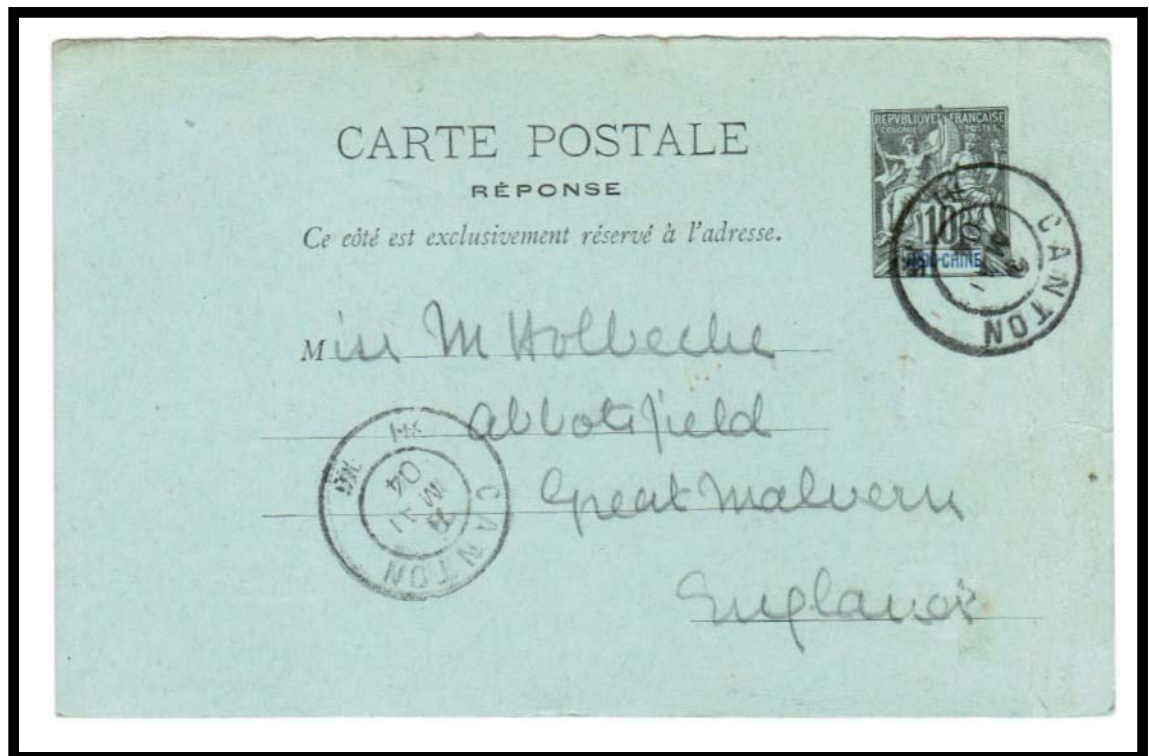 CARTE POSTALE
RÉPONSE
Ce côté est exclusivement réservé à l'adresse.
REPVBLIQVE FRANÇAISE
COLONIES POSTES
10
INDO-CHINE
CANTON
Miss M Holbeche
Abbotsfield
Great Malvern
England
CANTON
MAI
04